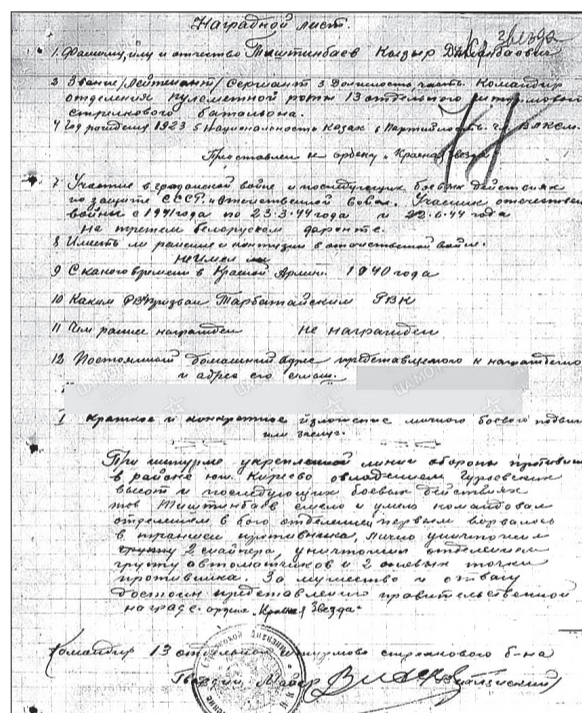 Наградной лист.
Звезда
1. Фамилию, имя и отчество Таштинбаев Кызыр
2 Звание /Лейтенант/ Сержант 3 Должность, часть. Командир
отделения пулеметной роты 13 отдельного штурмовой
стрелкового батальона.
4 Год рождения 1923 5 Национальность Козак 6 Партийность чл. ВЛКСМ.
Представлен к ордену "Красная Звезда"
7 Участие в гражданской войне и последующих боевых действиях
по защите СССР и отечественной войск. Участник отечествен
войны с 1941 года по 23-3-44 года и 22.6.44 года
на третем белоруском фронте.
8 Имеет ли ранение и контузии в отечественной войне.
не имел
9 С какого времени в Красной Армии. 1940 года
10 Каким РВК призван Тарбатайским РВК
11 Чем раннее награжден не награжден
12 Постоянный домашний адрес представляемого к награждению
и адрес его семьи.
1 Краткое и конкретное изложение личного боевого подви
или заслуг.
При штурме укрепленной линии обороны противни
в районе юж. Киреево овладением Гуроевских
высот и последующих боевых действиях
тов Таштинбаев смело и умело командовал
отделением в бою отделением первым ворвалось
в траншеи противника, лично уничтожил
группу 2 снайпера, уничтожил отделением
группу автоматчиков и 2 огневых точки
противника. За мужество и отвагу
достоин представления правительственной
награде: орден "Красная Звезда"
Командир 13 отдельного штурмово стрелкового б-на
Гвардии Майор